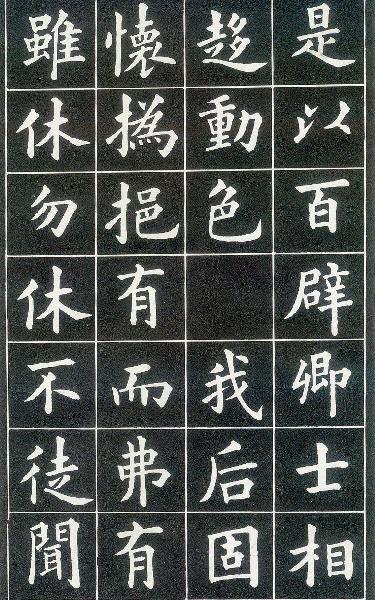 是以百辟卿士相
趍動色　我后固
懷撝挹有而弗有
雖休勿休不徒聞